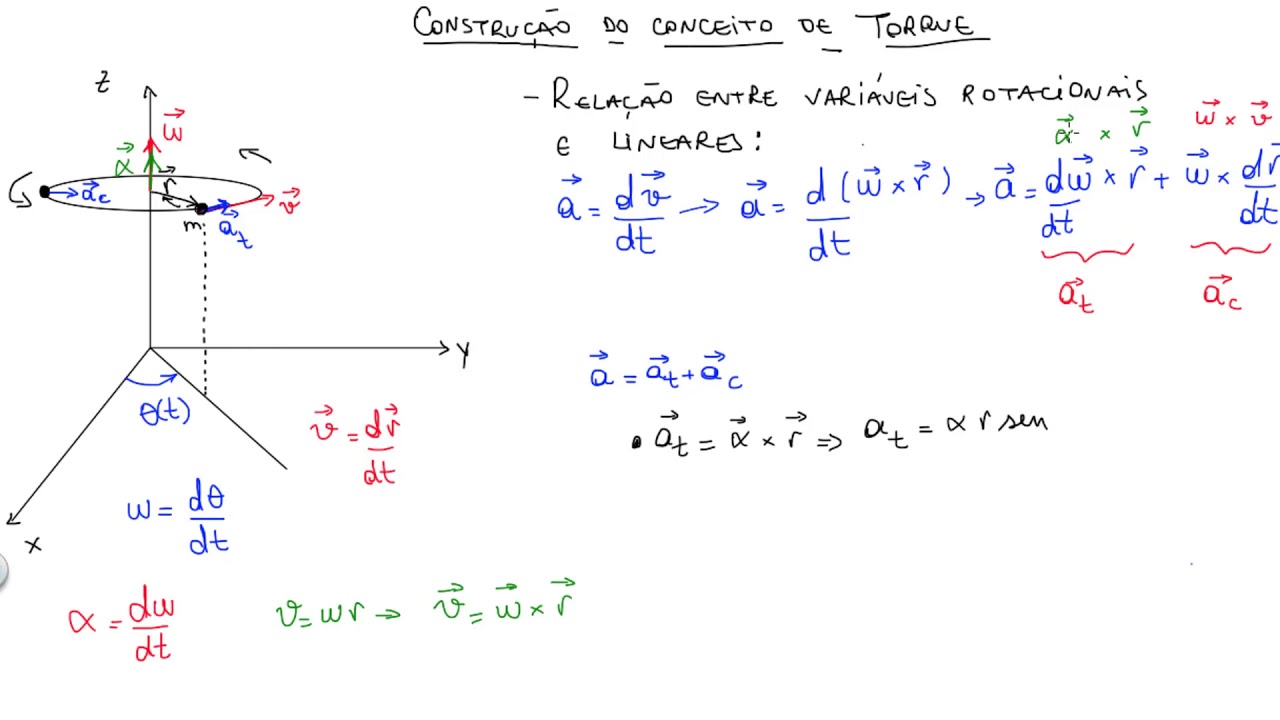 CONSTRUÇÃO DO CONCEITO DE TORQUE
- RELAÇÃO ENTRE VARIÁVEIS ROTACIONAIS
E LINEARES:
α⃗ × r⃗
w⃗ × v⃗
a⃗ = dv⃗/dt → a⃗ = d(w⃗ × r⃗)/dt → a⃗ = dw⃗/dt × r⃗ + w⃗ × dr⃗/dt
a⃗t
a⃗c
a⃗ = a⃗t + a⃗c
• a⃗t = α⃗ × r⃗ ⇒ at = α r sen
z
w⃗
α⃗
r⃗
a⃗c
v⃗
m
a⃗t
y
θ(t)
x
v⃗ = dr⃗/dt
w = dθ/dt
α = dw/dt
v = wr → v⃗ = w⃗ × r⃗